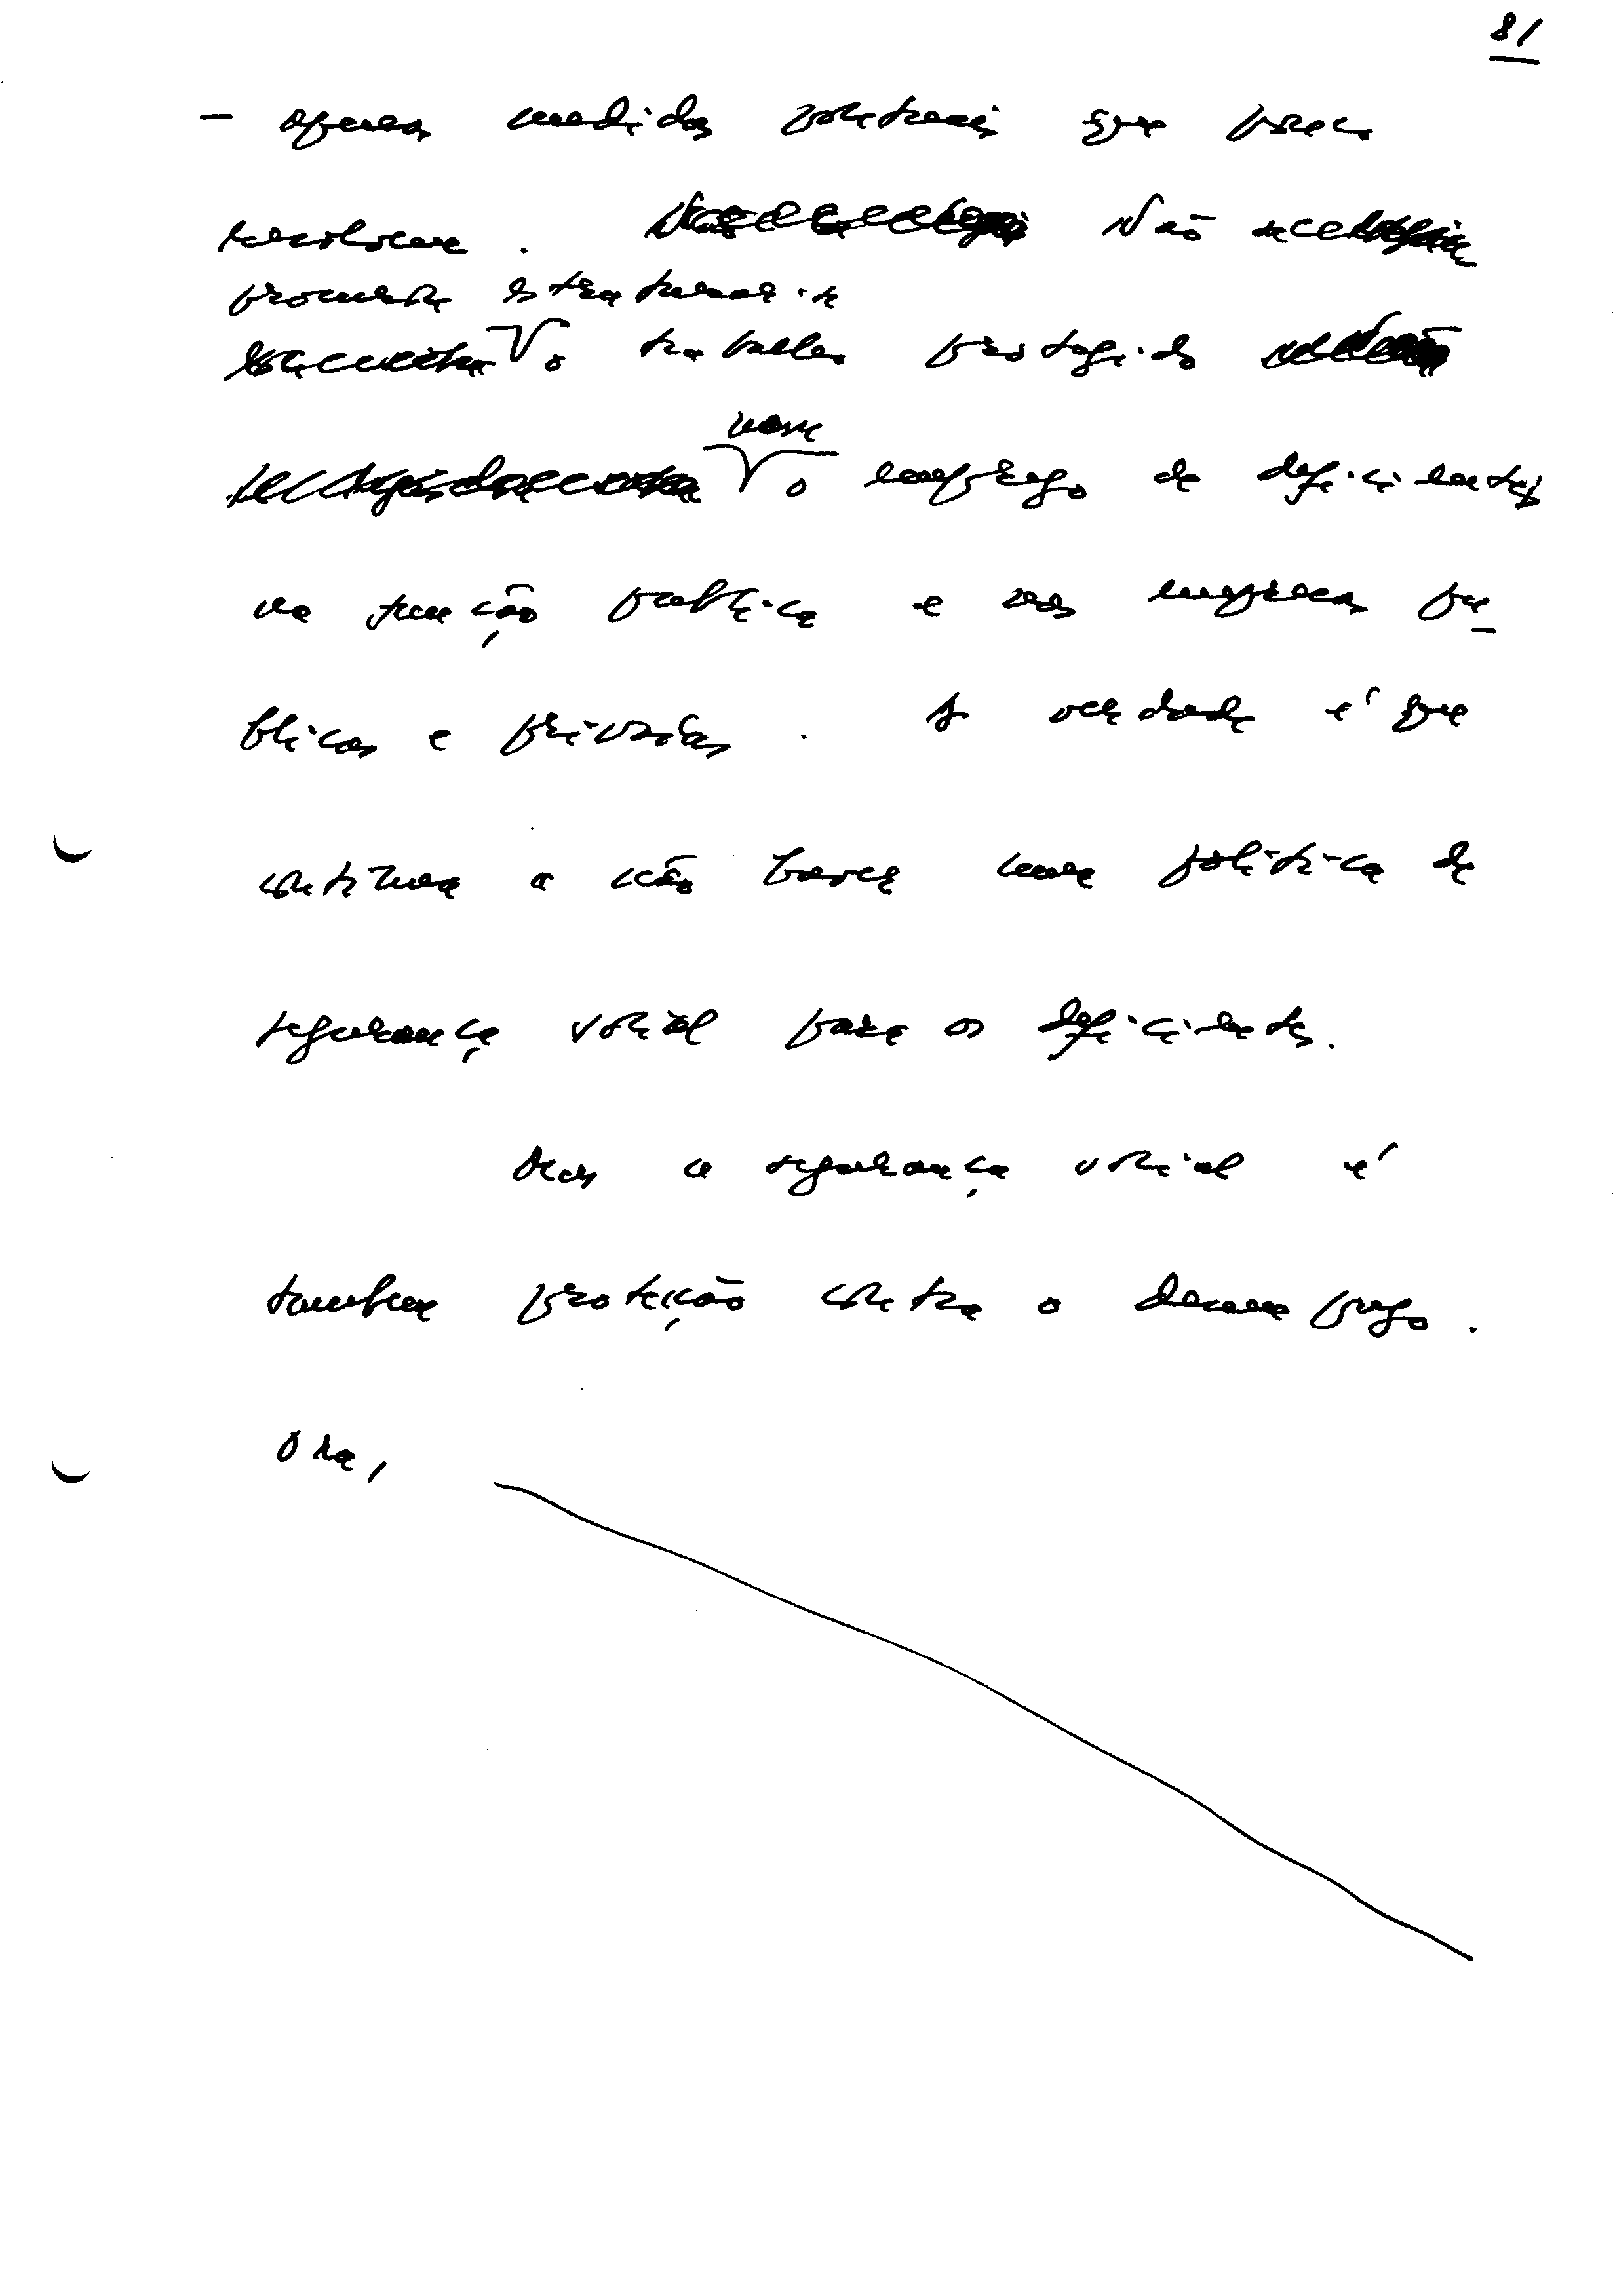 81
- apenas medidas pontuais que pouco
resolvem. Não se
procura estruturar-se
o trabalho protegido
nem
o emprego de deficientes
na função pública e nas empresas pú-
blicas e privadas. A verdade é que
continua a não haver uma política de
segurança social para os deficientes.
Mas a segurança social é
tambem protecção contra o desemprego.
Ora,